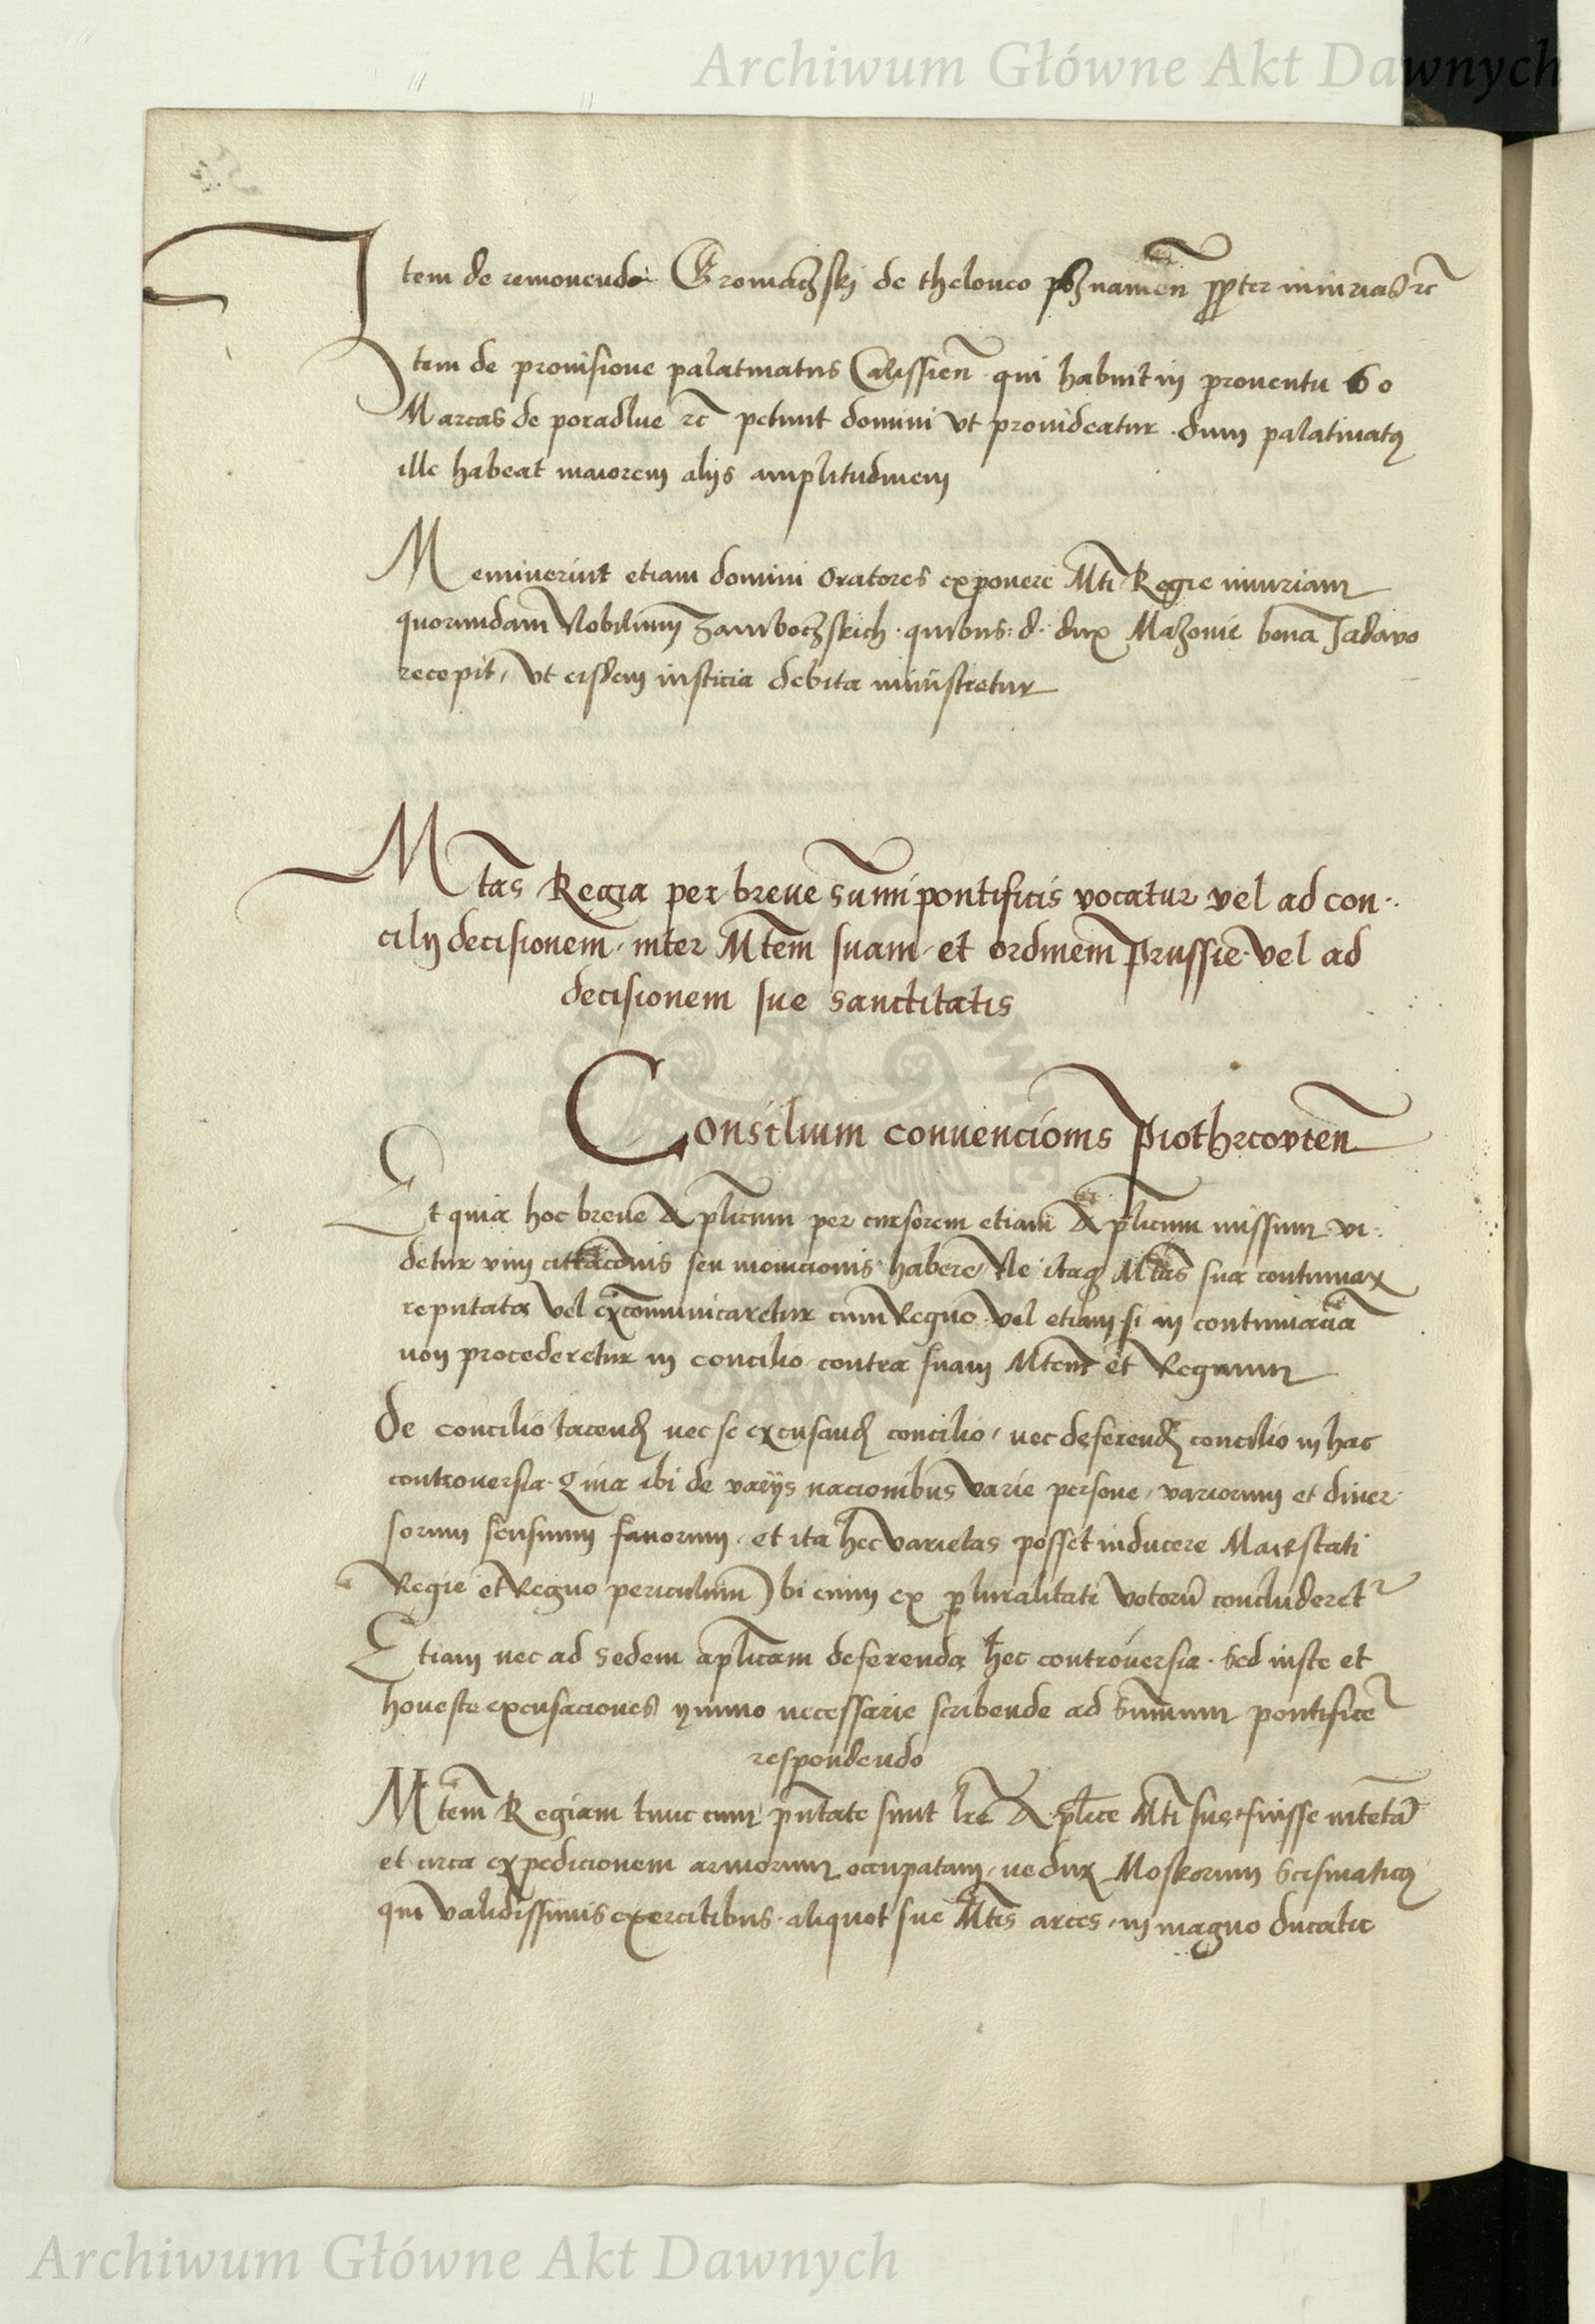 Archiwum Główne Akt Dawnych
Item de removendo Gromaczski de theloneo posznanien propter iniurias etc
Item de provisione palatinatus Calissien qui habuit in proventu 60
Marcas de poradlne etc petunt domini ut provideatur dum palatinatus
ille habeat maiorem aliis amplitudinem
Meminerint etiam domini Oratores exponere Mti Regie iniuriam
quorundam Nobilium quibus d. dux Mazovie bona
recepit, ut eisdem iusticia debita ministretur
Mtas Regia per breve summi pontificis vocatur vel ad con
cilij decisionem inter Mtem suam et ordinem Prussie vel ad
decisionem sue sanctitatis
Consilium convencionis Piothrcovien
Et quia hoc breve Aplicum per cursorem etiam Aplicum missum vi
detur vim citacionis seu monicionis habere Ne itaq Mtas sua contumax
reputata vel excommunicaretur cum Regno vel etiam si in contumacia
non procederetur in concilio contra suam Mtem et Regnum
De concilio tacend nec se excusand concilio, nec deferend concilio in hac
controversia Quia ibi de variis nacionibus varie persone, variorum et diver
sorum sensuum favorum, et ita hec varietas posset inducere Maiestati
Regie et Regno periculum Ubi enim ex pluralitate votorum concluderetur
Etiam nec ad sedem aplicam deferenda hec controversia. Sed iuste et
honeste excusaciones ymmo necessarie scribende ad summum pontificem
respondendo
Mtem Regiam tunc cum pntate sunt lre Aplice Mti sue, fuisse intentam
et circa expedicionem armorum occupatam, ne dux Moskorum scismaticus
qui validissimis exercitibus aliquot sue Mtis arces, in magno ducatu
Archiwum Główne Akt Dawnych